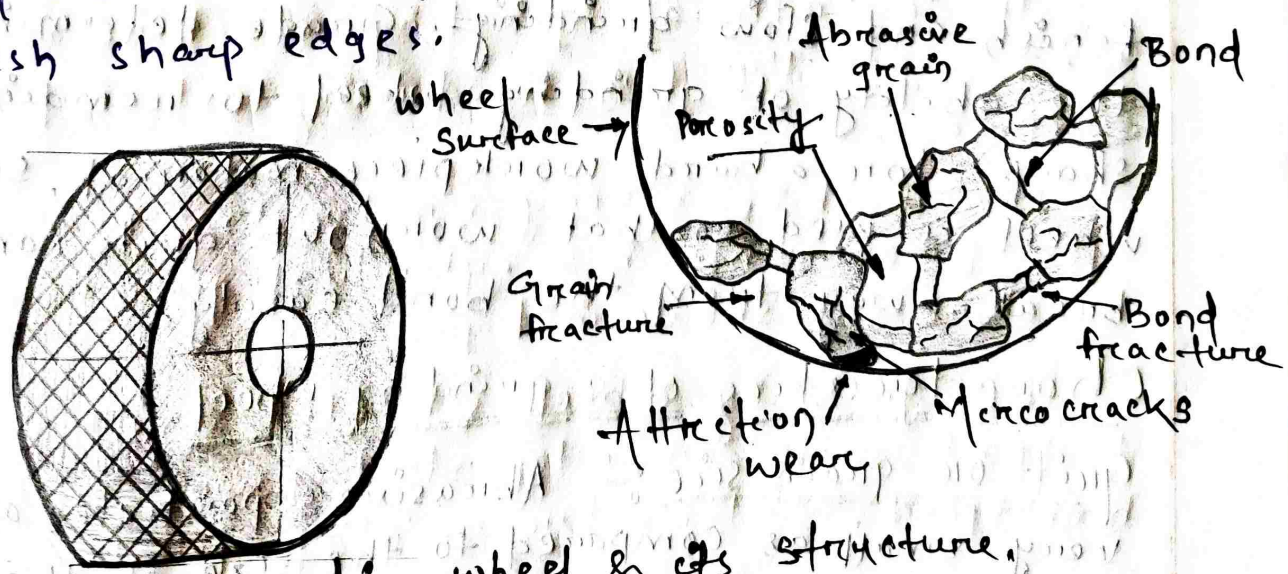 sh sharp edges.
Abrasive
grain
Bond
wheel
surface
Porosity
Grain
fracture
Bond
fracture
Attrition
wear
Mircocracks
wheel & its structure.